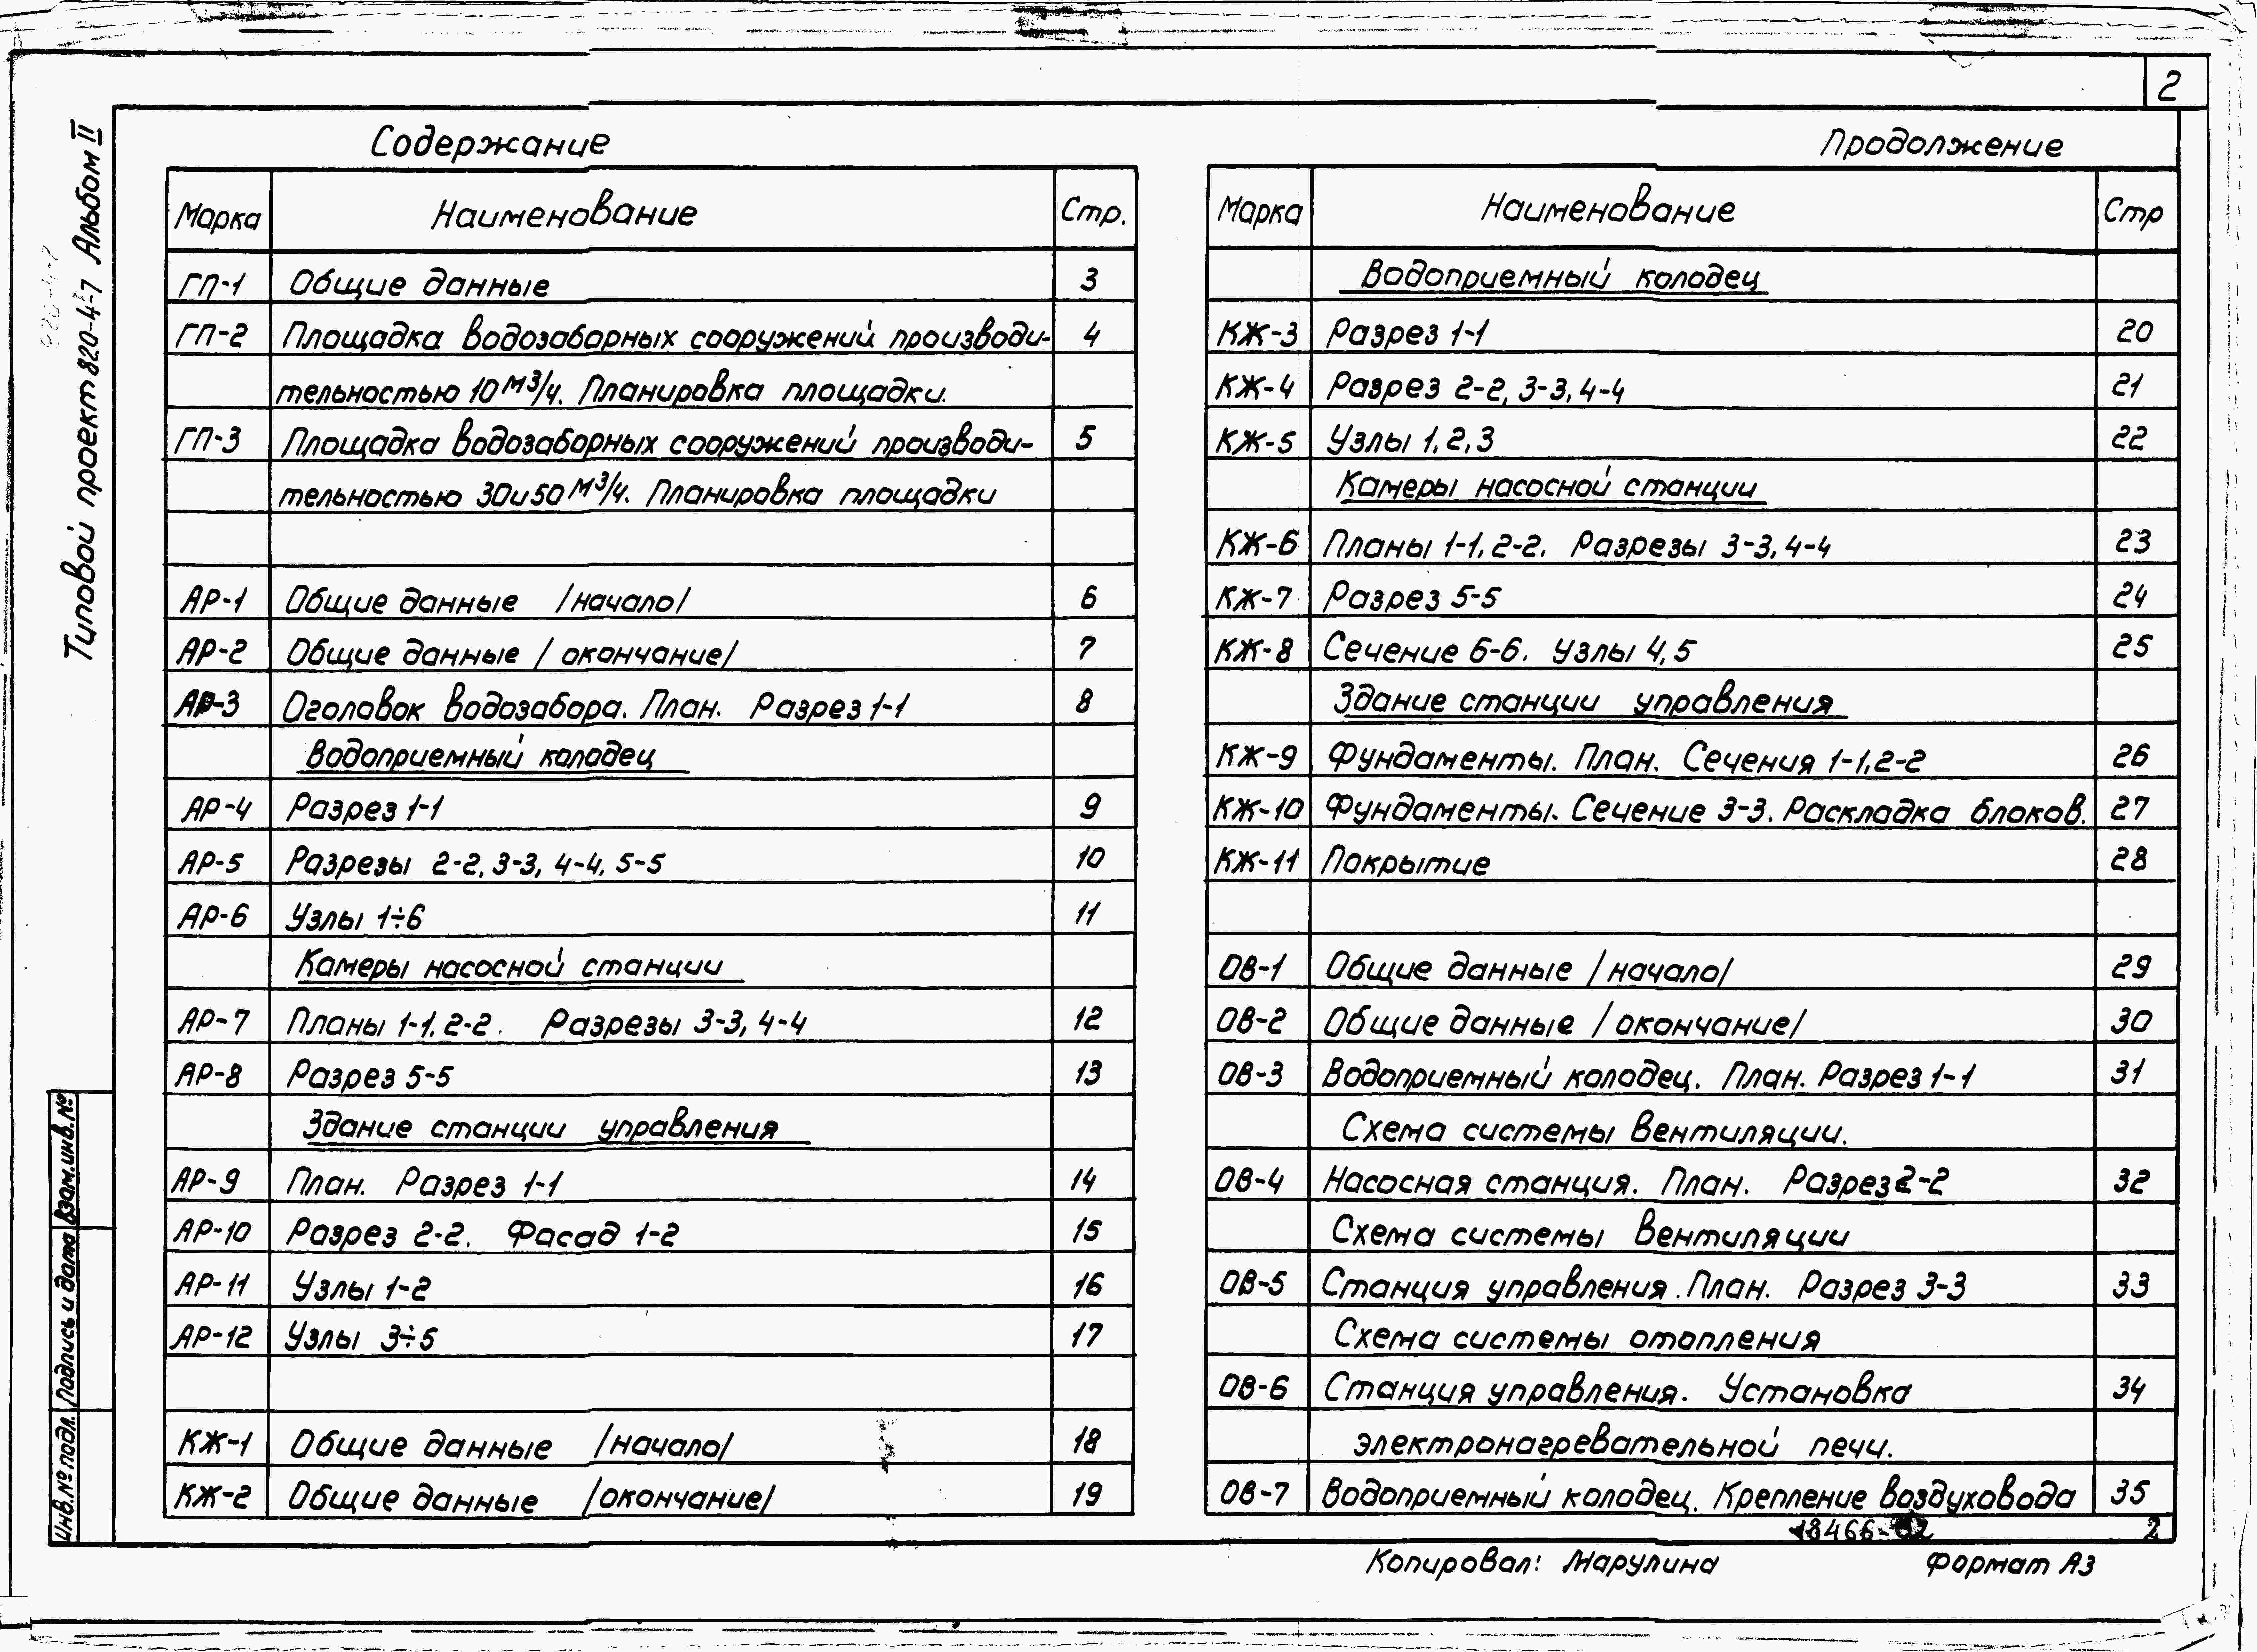 2
Типовой проект 820-4-7 Альбом II
Содержание
Марка Наименование Стр.
ГП-1 Общие данные 3
ГП-2 Площадка водозаборных сооружений производи- 4
тельностью 10 м3/ч. Планировка площадки.
ГП-3 Площадка водозаборных сооружений производи- 5
тельностью 30и50 м3/ч. Планировка площадки
АР-1 Общие данные /начало/ 6
АР-2 Общие данные /окончание/ 7
АР-3 Оголовок водозабора. План. Разрез 1-1 8
Водоприемный колодец
АР-4 Разрез 1-1 9
АР-5 Разрезы 2-2, 3-3, 4-4, 5-5 10
АР-6 Узлы 1÷6 11
Камеры насосной станции
АР-7 Планы 1-1, 2-2. Разрезы 3-3, 4-4 12
АР-8 Разрез 5-5 13
Здание станции управления
АР-9 План. Разрез 1-1 14
АР-10 Разрез 2-2. Фасад 1-2 15
АР-11 Узлы 1-2 16
АР-12 Узлы 3÷5 17
КЖ-1 Общие данные /начало/ 18
КЖ-2 Общие данные /окончание/ 19
Продолжение
Марка Наименование Стр
Водоприемный колодец
КЖ-3 Разрез 1-1 20
КЖ-4 Разрез 2-2, 3-3, 4-4 21
КЖ-5 Узлы 1, 2, 3 22
Камеры насосной станции
КЖ-6 Планы 1-1, 2-2. Разрезы 3-3, 4-4 23
КЖ-7 Разрез 5-5 24
КЖ-8 Сечение 6-6. Узлы 4, 5 25
Здание станции управления
КЖ-9 Фундаменты. План. Сечения 1-1, 2-2 26
КЖ-10 Фундаменты. Сечение 3-3. Раскладка блоков. 27
КЖ-11 Покрытие 28
ОВ-1 Общие данные /начало/ 29
ОВ-2 Общие данные /окончание/ 30
ОВ-3 Водоприемный колодец. План. Разрез 1-1 31
Схема системы вентиляции.
ОВ-4 Насосная станция. План. Разрез 2-2 32
Схема системы вентиляции
ОВ-5 Станция управления. План. Разрез 3-3 33
Схема системы отопления
ОВ-6 Станция управления. Установка 34
электронагревательной печи.
ОВ-7 Водоприемный колодец. Крепление воздуховода 35
18466-02 2
Копировал: Марулина Формат А3
Инв.№ подл. Подпись и дата Взам.инв.№